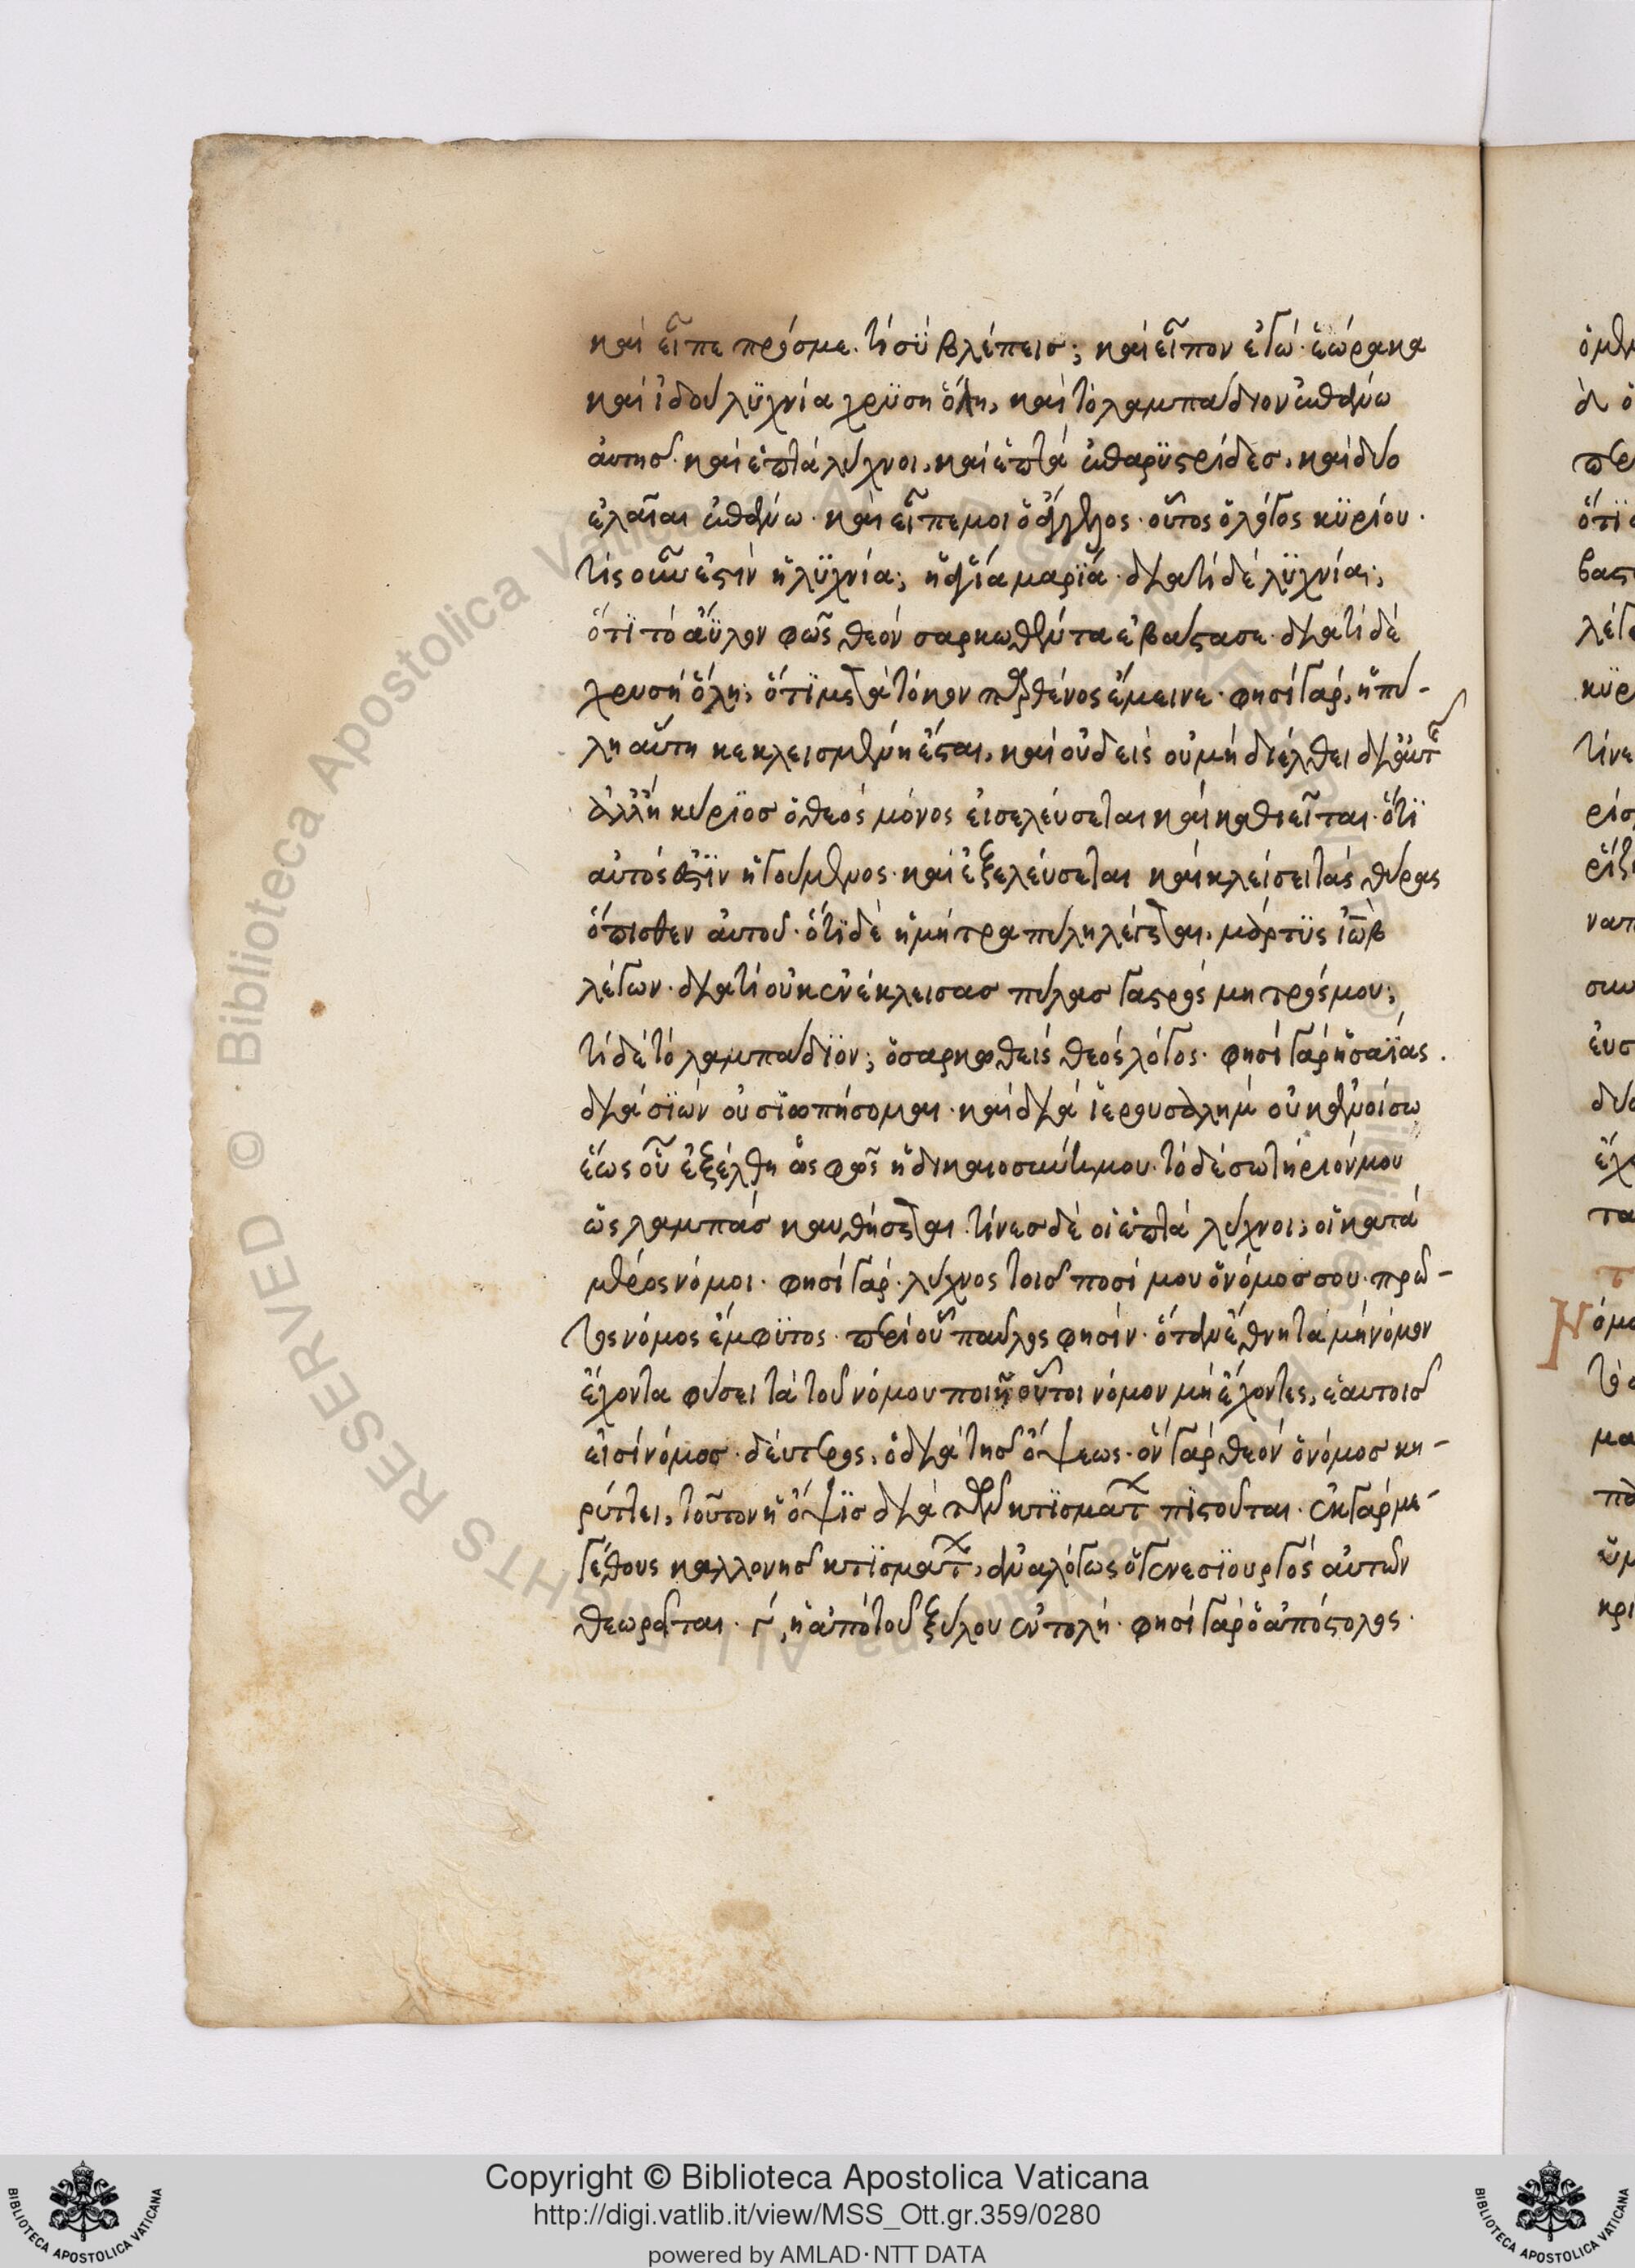 καὶ εἶπε πρός με. τί σὺ βλέπεις; καὶ εἶπον ἐγώ· ἑώρακα
καὶ ἰδοὺ λϋχνία χρϋσῆ ὅλη, καὶ τὸ λαμπάδιον ἐπάνω
ἀυτῆς· καὶ ἑπτὰ λύχνοι, καὶ ἑπτὰ ἐπαρϋστρίδες, καὶ δύο
ἐλαῖαι ἐπάνω· καὶ εἶπε μοι ὁ ἄγγελος· οὗτος ὁ λόγος κϋρίου·
τίς οὖν ἐστὶν ἡ λϋχνία; ἡ ἁγία μαρϊα· διατί δὲ λϋχνία;
ὅτϊ τὸ ἄϋλον φῶς θεὸν σαρκωθέντα ἐβάστασε· διατί δὲ
χρυσῆ ὅλη; ὅτϊ μετὰ τόκον παρθένος ἔμεινε· φησὶ γάρ, ἡ πύ-
λη αὕτη κεκλεισμένη ἔσται, καὶ οὐδεὶς οὐ μὴ διέλθει δι αὐτῆς
ἀλλ ἢ κύρϊος ὁ θεὸς μόνος εἰσελεύσεται καὶ καθιεῖται· ὅτϊ
αὐτός ἐστϊν ἡγούμενος· καὶ ἐξελεύσεται καὶ κλείσει τὰς θύρας
ὄπισθεν ἀυτοῦ· ὅτϊ δὲ ἡ μήτρα πύλη λέγεται, μάρτϋς ἰὼβ
λέγων· διατί οὐκ ἐνέκλεισας πύλας γαστρός μητρός μου;
τί δὲ τὸ λαμπάδϊον; ὁ σαρκωθεὶς θεὸς λόγος· φησὶ γὰρ ἡσαΐας.
διὰ σϊὼν οὐ σϊωπήσομαι· καὶ διὰ ἱερουσαλὴμ οὐκ ἀνοίσω
ἕως οὗ ἐξέλθη ὡς φῶς ἡ δικαιοσύνη μου· τὸ δὲ σωτήριόν μου
ὡς λαμπὰς καυθήσεται· τίνες δὲ οἱ ἑπτὰ λύχνοι; οἱ κατὰ
μέρος νόμοι· φησὶ γάρ· λύχνος τοῖς ποσί μου ὁ νόμος σου· πρῶ-
τος νόμος ἔμφϋτος· περὶ οὗ παῦλος φησίν· ὅταν ἔθνη τὰ μὴ νόμον
ἔχοντα φύσει τὰ τοῦ νόμου ποιῆ οὗτοι νόμον μὴ ἔχοντες, ἑαυτοῖς
εἰσὶ νόμος· δεύτερος, ὁ διὰ τῆς ὄψεως· ὃν γὰρ θεὸν ὁ νόμος κη-
ρύττει, τοῦτον ἡ ὄψϊς διὰ τῶν κτϊσμάτων πϊστοῦται· ἐκ γὰρ με-
γέθους καλλονῆς κτϊσμάτων, ἀναλόγως ὁ γενεσϊουργὸς αὐτῶν
θεωρᾶται· γ, ἡ ἀπὸ τοῦ ξύλου ἐντολή· φησὶ γὰρ ὁ ἀπόστολος·
Copyright © Biblioteca Apostolica Vaticana
http://digi.vatlib.it/view/MSS_Ott.gr.359/0280
powered by AMLAD·NTT DATA